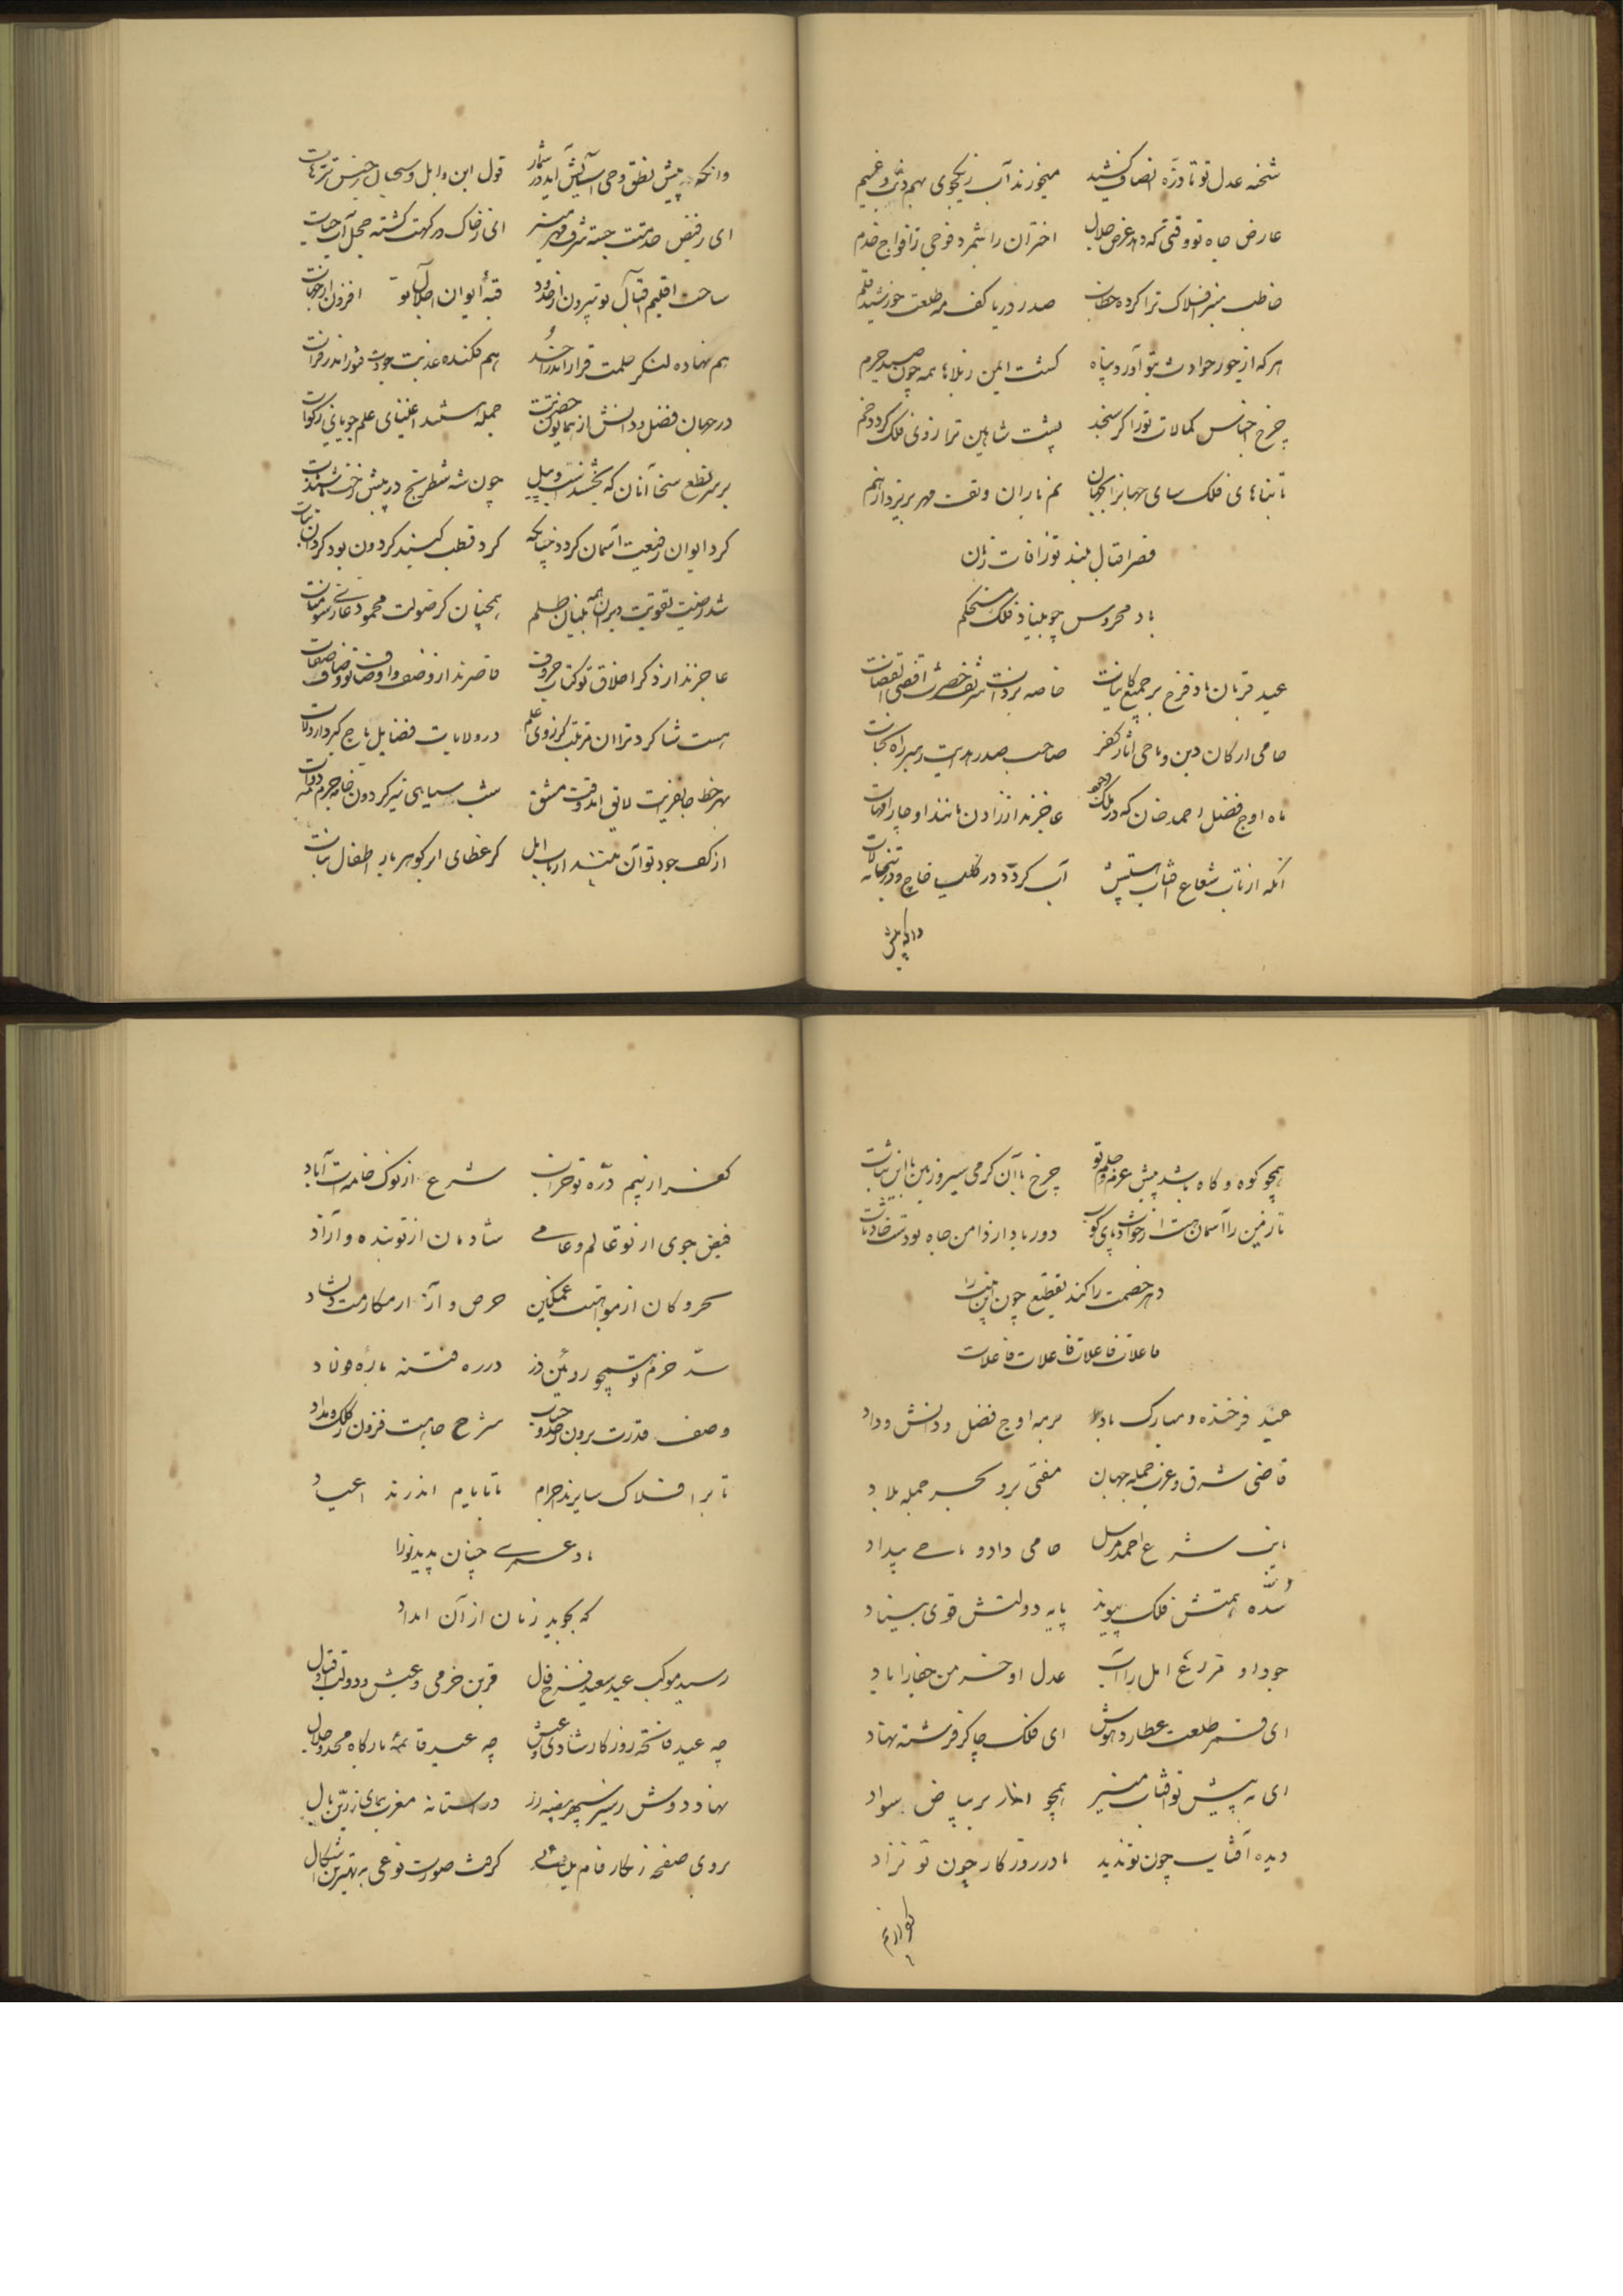 شحنه عدل تو تا دره انصاف کشید میخورند آب ز یکجوی بهم ذئب و غنیم
عارض جاه تو وقتی که دهد عرض جلال اختران را شمرد فوجی ز افواج خدم
خاطب منبر افلاک ترا کرده خطاب صدر دریا کف مه طلعت خورشید قلم
هر که از جور حوادث بتو آورد پناه گشت ایمن ز بلاها همه چون صید حرم
چرخ اجناس کمالات تو را گر سنجد پشت شاهین ترازوی فلک گردد خم
تا بناهای فلک سای جهانرا بجهان نم باران و تف مهر بریزد از هم
قصر اقبال بلند تو ز آفات زمان
باد محروس چو بنیاد فلک مستحکم
عید قربان باد فرخ بر جمیع کاینات خاصه بر ذات شریف حضرت اقضی القضات
حامی ارکان دین و ماحی آثار کفر صاحب صدر هدایت رهبر راه نجات
ماه اوج فضل احمد خان که در ملک وجود عاجزند از زادن مانند او چار امهات
آنکه از تاب شعاع آفتاب آب گردد در کلیسا خاج و در بتخانه لات
وانکه پیش
وانکه پیش نطق وحی آساییش آید در شمار قول ابن وایل و سحبان ز جنس ترهات
ای ز فیض خدمتت جسته شرف مهر منیر ای ز خاک درگهت گشته خجل آب حیات
ساحت اقلیم اقبال تو بیرون از حدود قبه ایوان اجلال تو افزون از جهات
هم نهاده لنگر حلمت قرار اندر احد هم فکنده عذبت جودت شور اندر فرات
در جهان فضل و دانش از همایون حضرتت جمله هستند اغنیای علم جویای زکوات
بر سر نطع سخا آنان که بخشند اسب و پیل چون شه شطرنج در پیش رخت
گرد ایوان رفیعت آسمان گردد چنانکه گرد قطب گنبد گردون بود گردان بنات
شد ز عینت تقویت ویران همه بنیان ظلم همچنان کز صولت محمود غازی سومنات
عاجزند از ذکر اخلاق تو کتاب حروف قاصرند از وصف
هست شاگرد ترا آن مرتبت کز روی علم در ولایات فضایل باج گیرد از ولات
بهر خط جانفزیت لایق آید وقت مشق شب سیاهی تیر گردون خامه جرم مه دوات
از کف جود تو آن بینند ارباب امل کز عطای ابر گوهر بار اطفال نبات
همچو کوه و کاه باشد پیش عزم و حلم تو چرخ با آن گرمی سیر و زمین با این ثبات
تا زمین را آسمان هست از حوادث پای کوب دور باد از دامن جاه تو دست حادثات
دهر خصمت را کند تقطیع چون این بیت را
فاعلات فاعلات فاعلات فاعلات
عید فرخنده و مبارک باد بر مه اوج فضل و دانش و داد
قاضی شرق و غرب جمله جهان مفتی بر و بحر جمله بلاد
نایب شرع احمد مرسل حامی داد و ماحی بیداد
سده همتش فلک پیوند پایه دولتش قوی بنیاد
جود او مزرع امل را آب عدل او خرمن جفا را باد
ای قمر طلعت عطارد هوش ای فلک چاکر فرشته نهاد
ای به پیش تو آفتاب منیر همچو اغیار بر بیاض سواد
دیده آفتاب چون تو ندید مادر روزگار چون تو نزاد
کفر از بیم
کفر از بیم دره تو خراب شرع از نوک خامه ات آباد
فیض جوی از تو عالم و عامی شادمان از تو بنده و آزاد
بحر و کان از مواهبت غمگین حرص و آز از مکارمت دلشاد
سد حزم تو همچو روئین دز در ره فتنه باره فولاد
وصف قدرت برون ز حد و حساب شرح جاهت فزون ز کلک و مداد
تا بر افلاک سایرند اجرام تا بایام اندرند اعیاد
باد عمری چنان پدید تو را
که بجوید زمان از آن امداد
رسید موکب عید سعید فرخ فال قرین خرمی و عیش و دولت و اقبال
چه عید فاتحه روزگار شادی و عیش چه عید قائمه بارگاه مجد و جلال
نهاد دوش ز سیر سپهر بیضه زر در آستانه مغرب همای زرین بال
بروی صفحه زنگار فام گرفت صورت نوعی به بهترین اشکال